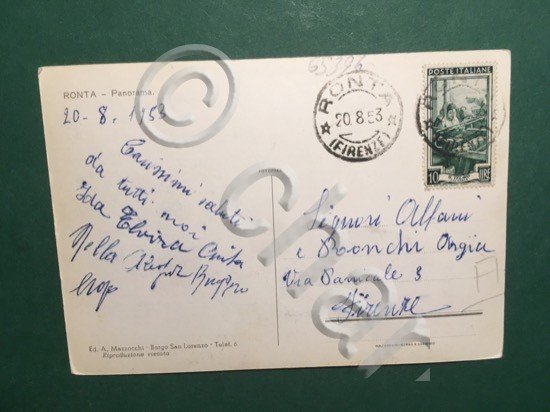 RONTA - Panorama.
20-8.1953
Carissimi saluti
da tutti noi
Ida Elvira Anita
Nella
65326
RONTA
20.8.53
(FIRENZE)
POSTE ITALIANE
10 LIRE
Signori Alfani
e Ronchi
Via 3
Firenze
Ed. A. Mazzocchi - Borgo San Lorenzo - Telef. 6
Riproduzione vietata